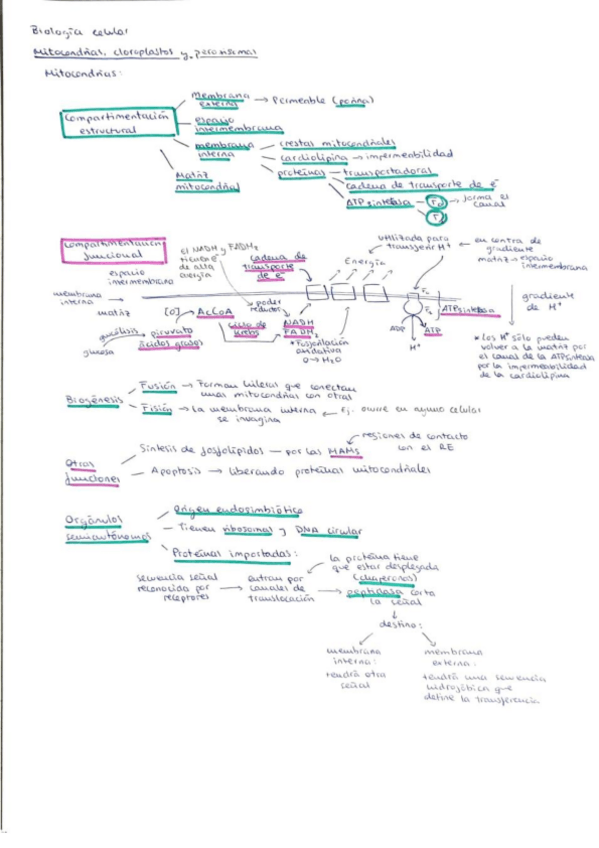 Biología celular
Mitocondrias, cloroplastos y peroxisomas
Mitocondrias:
Compartimentación
estructural
membrana
externa → Permeable (porina)
espacio
intermembrana
membrana
interna
crestas mitocondriales
cardiolipina → impermeabilidad
proteínas — transportadoras
cadena de transporte de e⁻
ATP sintasa
F₀ → forma el
canal
F₁
Matriz
mitocondrial
Compartimentación
funcional
el NADH y FADH₂
tienen e⁻
de alta
energía
cadena de
transporte
de e⁻
Energía
utilizada para
transferir H⁺
en contra de
gradiente
matriz → espacio
intermembrana
espacio
intermembrana
membrana
interna
matriz
[O] → AcCoA
poder
reductor
ciclo de
Krebs
NADH
FADH₂
glucólisis
piruvato
glucosa
ácidos grasos
* Fosforilación
oxidativa
O → H₂O
F₀
F₁
ATP sintasa
ADP
ATP
H⁺
gradiente
de H⁺
* Los H⁺ sólo pueden
volver a la matriz por
el canal de la ATP sintasa
por la impermeabilidad
de la cardiolipina
Biogénesis
Fusión → Forman hileras que conectan
unas mitocondrias con otras
Fisión → La membrana interna
se invagina
Ej. ocurre en ayuno celular
Otras
funciones
Síntesis de fosfolípidos — por las MAMs
regiones de contacto
con el RE
Apoptosis → liberando proteínas mitocondriales
Orgánulos
semiautónomos
Origen endosimbiótico
Tienen ribosomas y DNA circular
Proteínas importadas:
la proteína tiene
que estar desplegada
(chaperonas)
secuencia señal
reconocida por
receptores
→ entran por
canales de
translocación
→ peptidasa corta
la señal
destino:
membrana
interna:
tendrá otra
señal
membrana
externa:
tendrá una secuencia
hidrofóbica que
define la transferencia